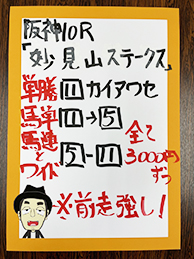 阪神10R
「妙見山ステークス」
単勝 11 カイアワセ
馬単 11→5
馬連とワイド 5-11
全て3000円ずつ
※前走強し！